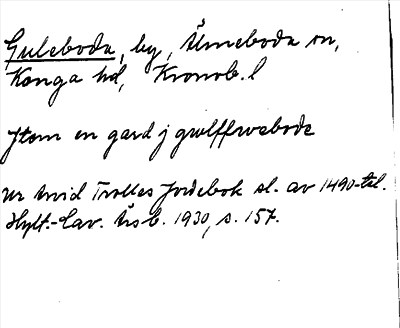 Guleboda, by, Älmeboda sn,
Konga hd, Kronob. l
Jtem en gard j gwlffwabode
ur Arvid Trolles Jordebok sl. av 1490-tal.
Hylt.-Cav. Årsb. 1930, s. 157.